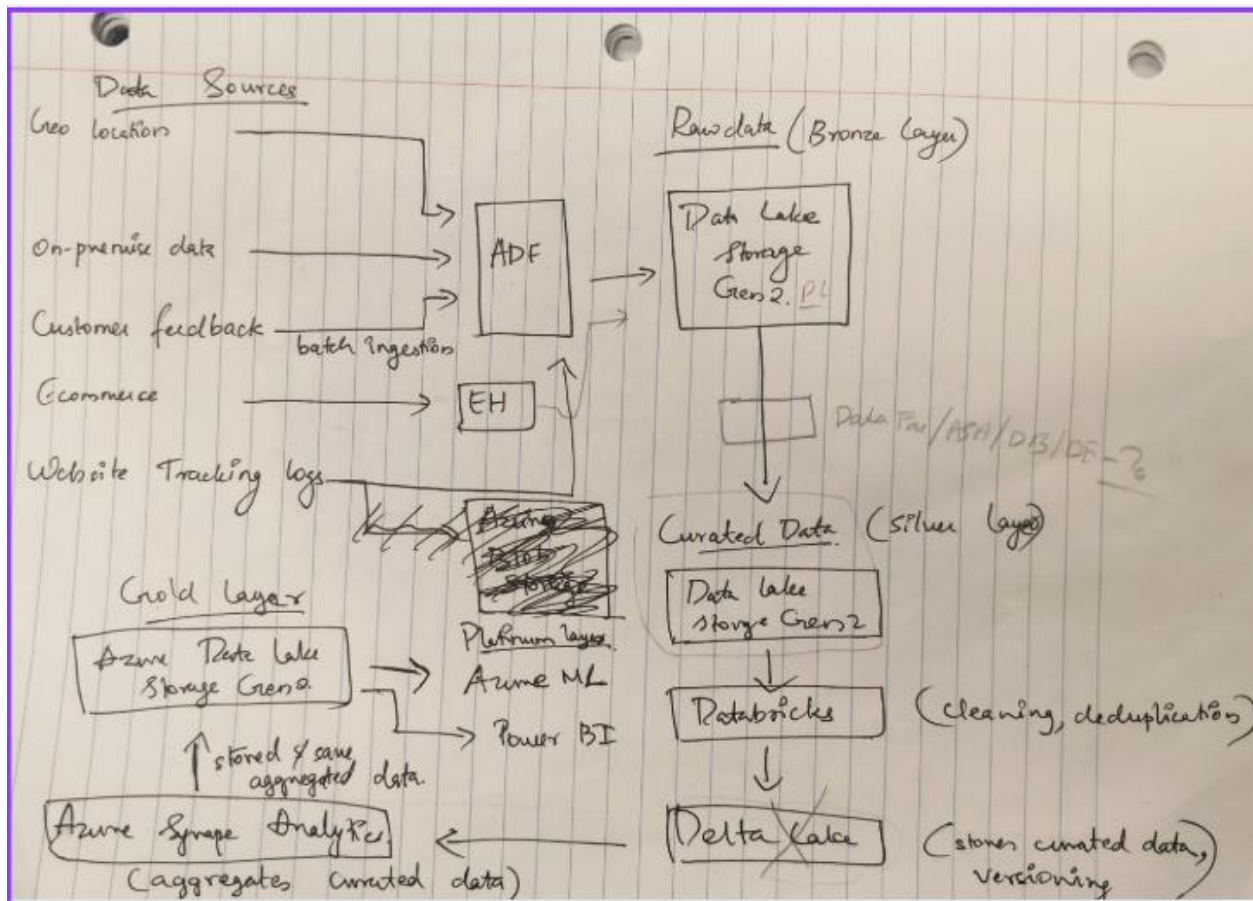 Data Sources
Geo location
On-premise data
Customer feedback
batch ingestion
Ecommerce
Website Tracking logs
ADF
EH
Raw data (Bronze Layer)
Data Lake
Storage
Gen2.
/ASA/DB/DF - ?
Curated Data (Silver layer)
Data Lake
storge Gen2
Databricks
(cleaning, deduplication)
Delta Lake
(stores curated data,
versioning
Azure
Blob
Storage
Platinum layer
Azure ML
Power BI
Gold Layer
Azure Data Lake
Storage Gen2.
stored & save
aggregated data.
Azure Synapse Analytics
(aggregates curated data)